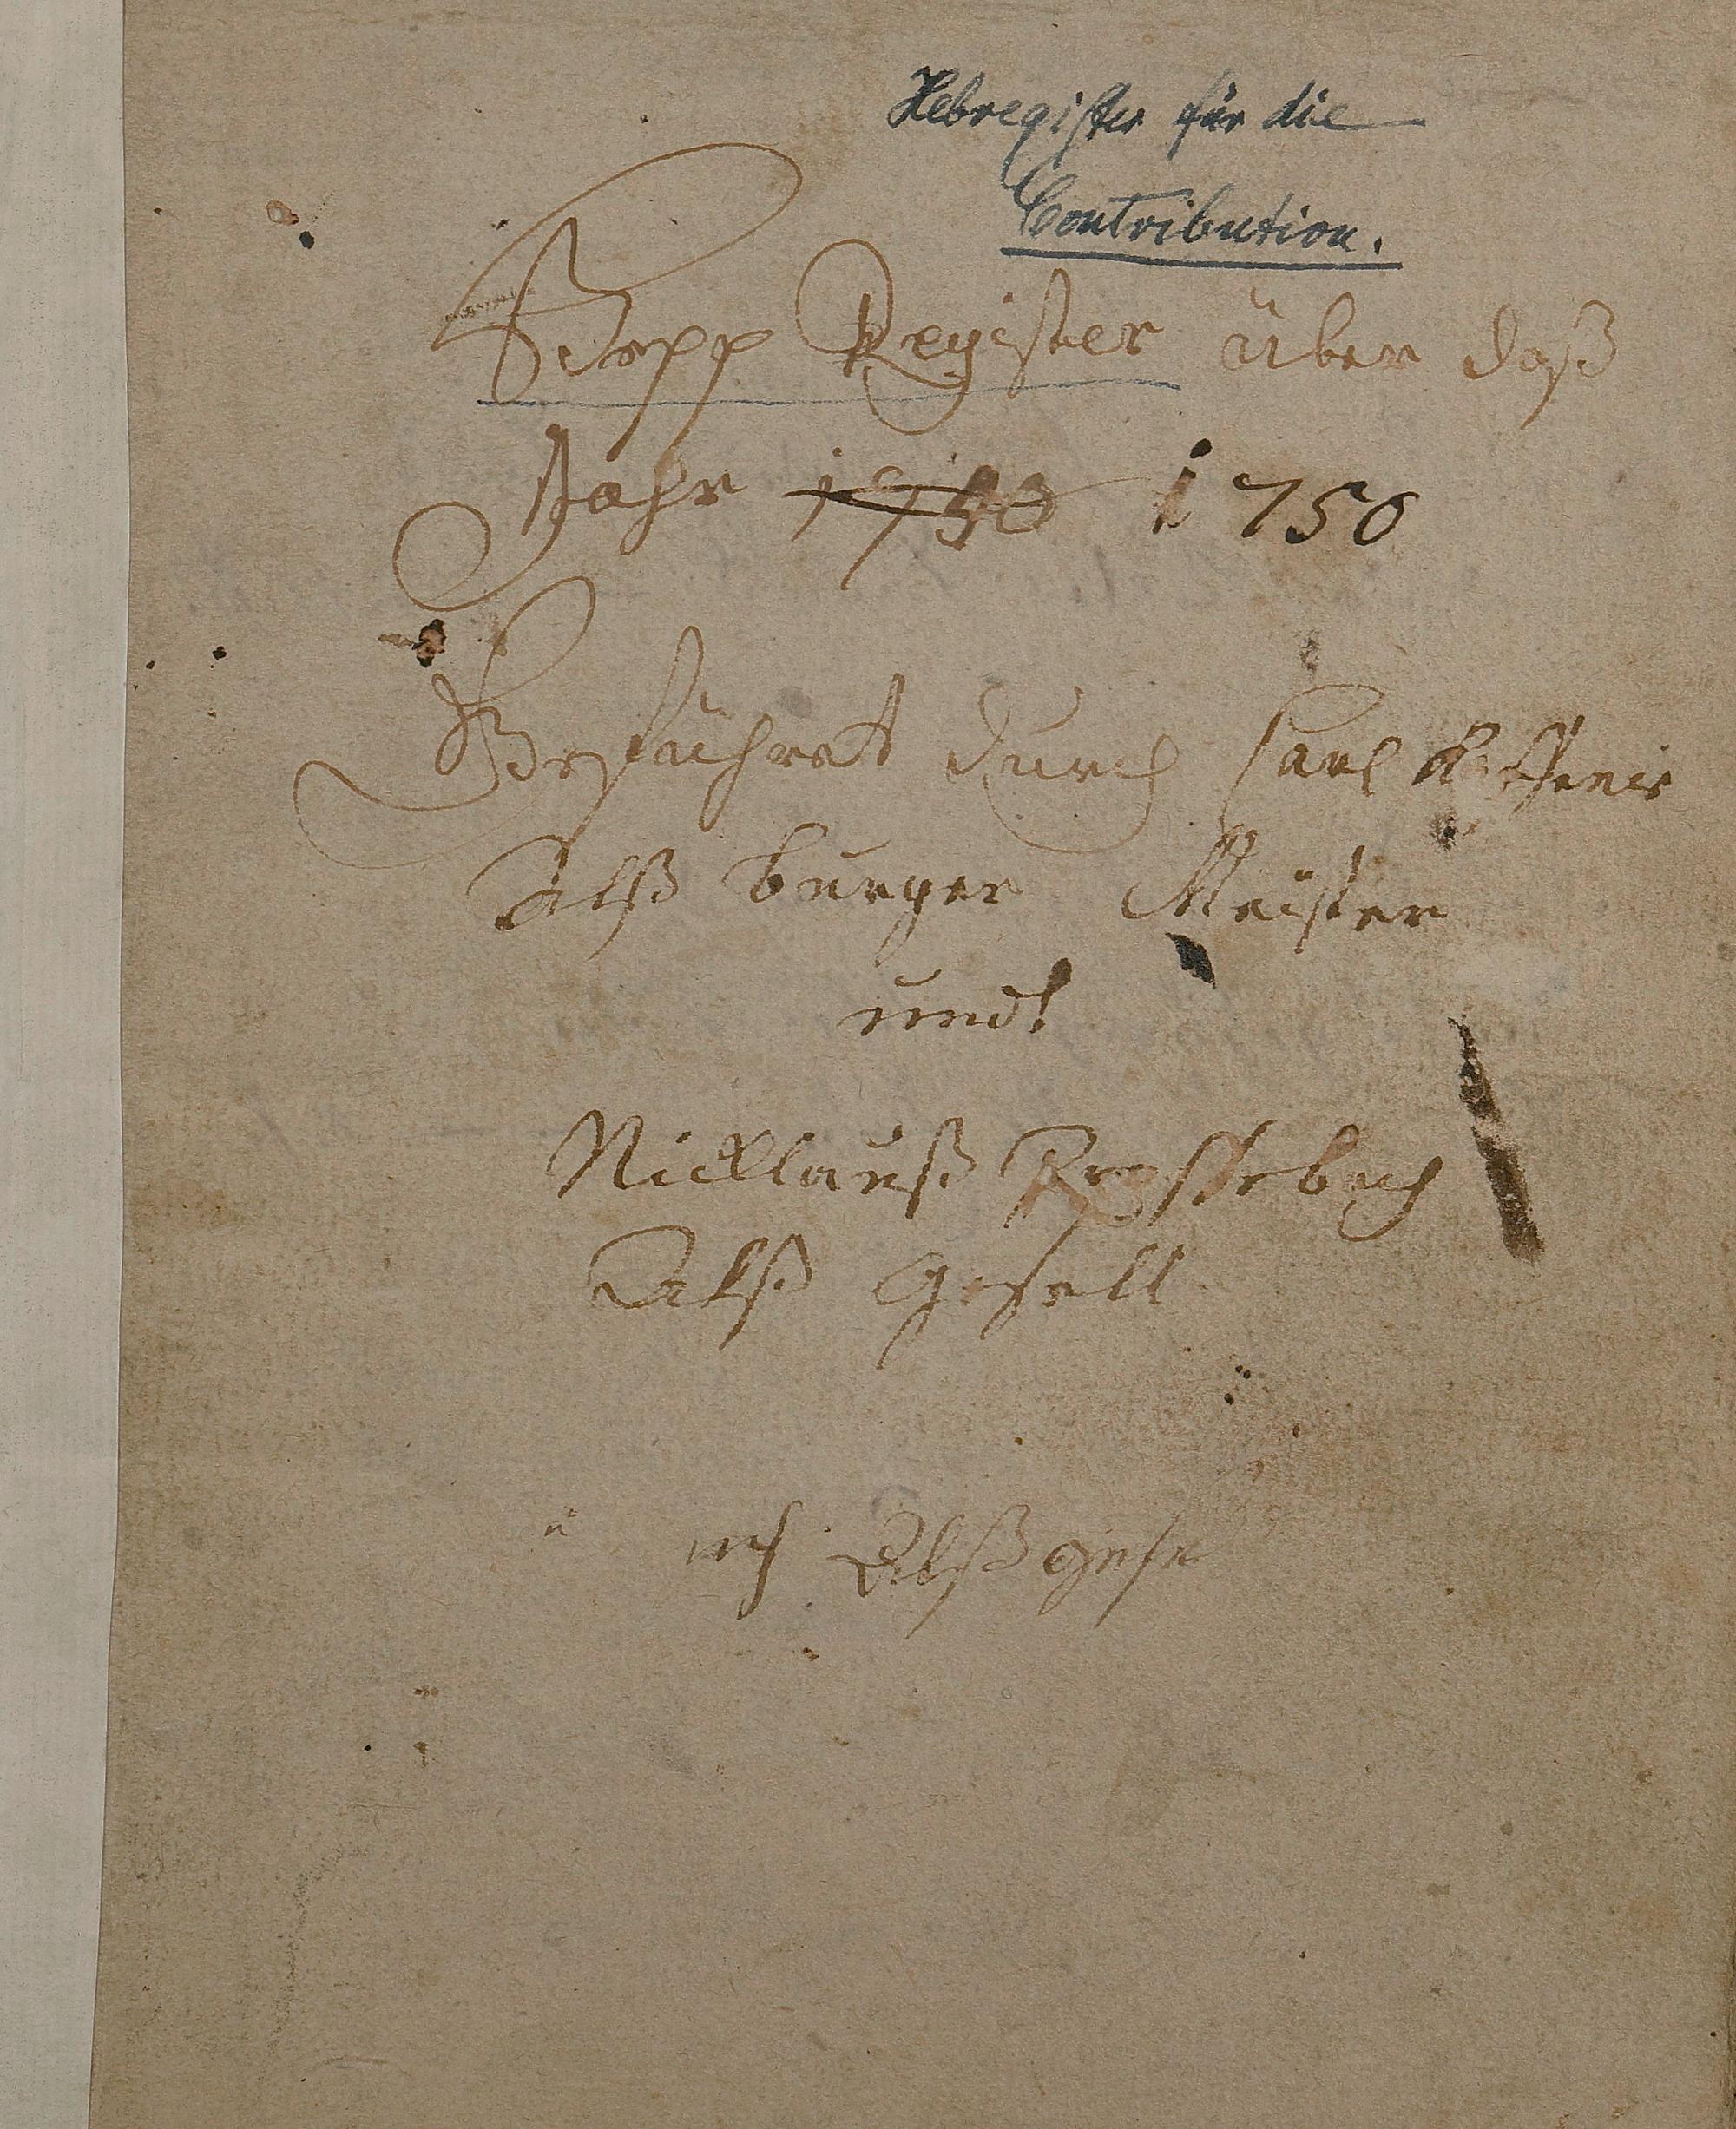 Hebregister für die
Contribution.
Register über daß
Jahr 1750 1750
Geführet durch Carl
Alß burger Meister
undt
Nicklauß
Alß gesell
Alß gese